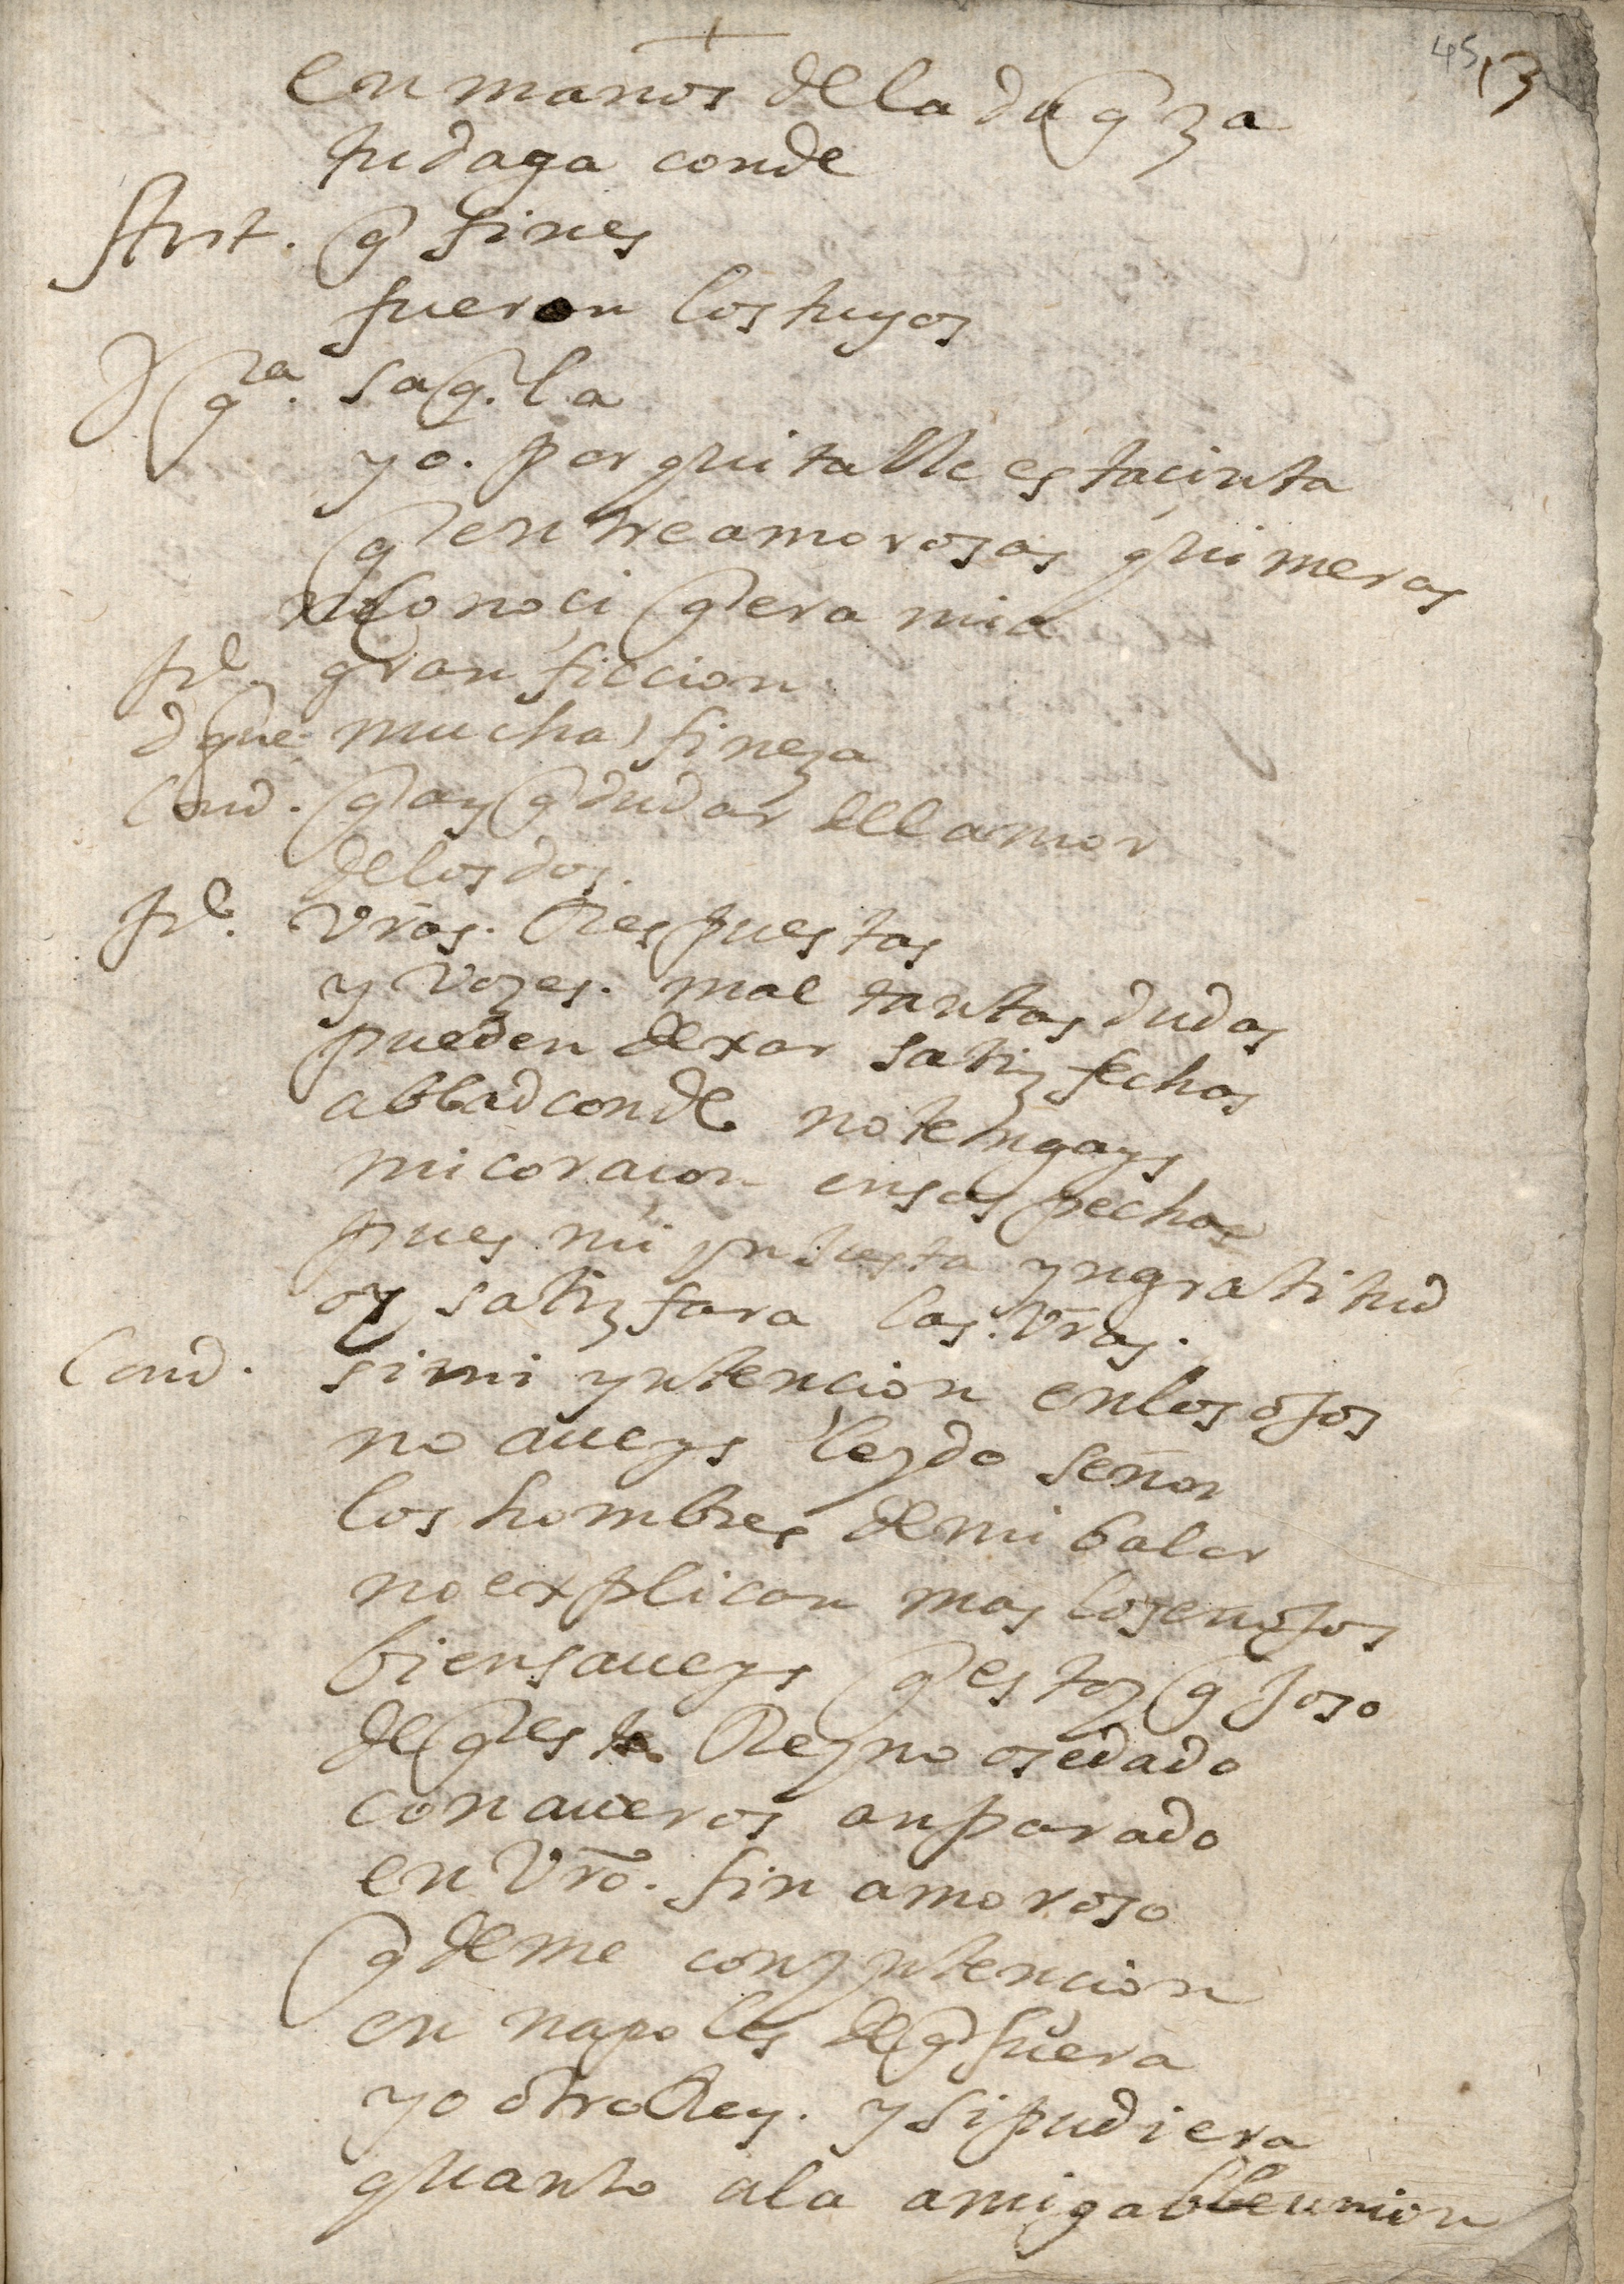 45 13
en manos de la duqza
tu daga conde
Arist. q fines
fueron los tuyos
Dqza. saq. la
yo. por quitalle esta cinta
q entre amorosas quimeras
conoci q era mia
gran ficcion
dque mucha fineza
Cond. q ay q dudar del amor
de los dos.
vras. Respuestas
y vozes. mal tantas dudas
pueden dexar satizfechas
abbad conde no tengays
mi coracon en sospechas
pues mi ynjusta yngratitud
oy satizfara las. vras.
Cond. si mi yntencion en los ojos
no aueys leydo señor
los hombres de mi balor
no explican mas los enojos
bien saueys q estoy qjoso
de q este Reyno os e dado
con aueros anparado
en vro. fin amoroso
q deme con yntencion
en napoles de q fuera
yo otro Rey. y si pudiera
quanto a la amigable union